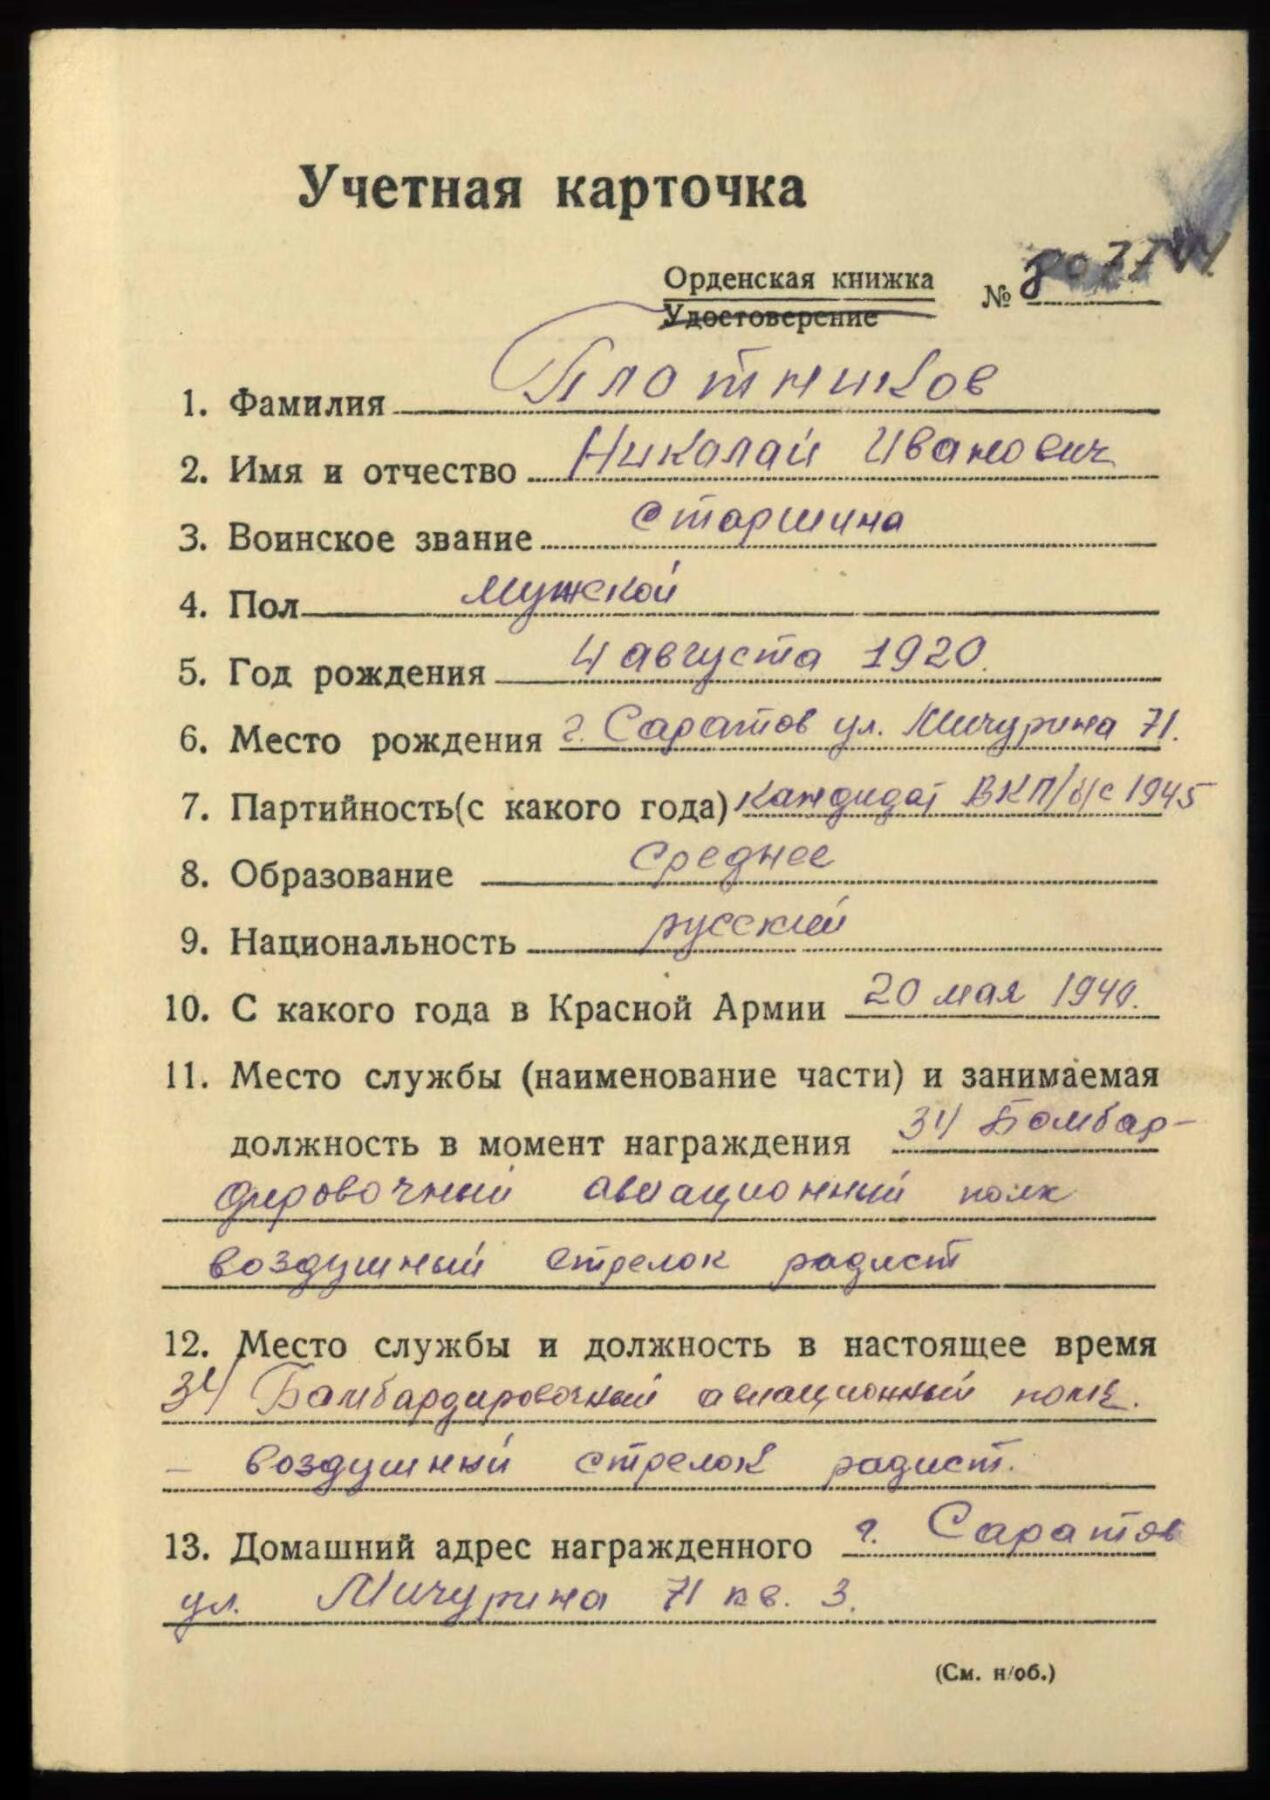 Учетная карточка
Орденская книжка
Удостоверение
№
1. Фамилия Плотников
2. Имя и отчество Николай Иванович
3. Воинское звание старшина
4. Пол Мужской
5. Год рождения 4 августа 1920.
6. Место рождения г. Саратов ул. Мичурина 71.
7. Партийность (с какого года) кандидат ВКП/б/с 1945
8. Образование среднее
9. Национальность русский
10. С какого года в Красной Армии 20 мая 1940.
11. Место службы (наименование части) и занимаемая
должность в момент награждения 34 Бомбар-
дировочный авиационный полк
воздушный стрелок радист
12. Место службы и должность в настоящее время
34 Бомбардировочный авиационный полк.
– воздушный стрелок радист.
13. Домашний адрес награжденного г. Саратов
ул. Мичурина 71 кв. 3.
(См. н/об.)